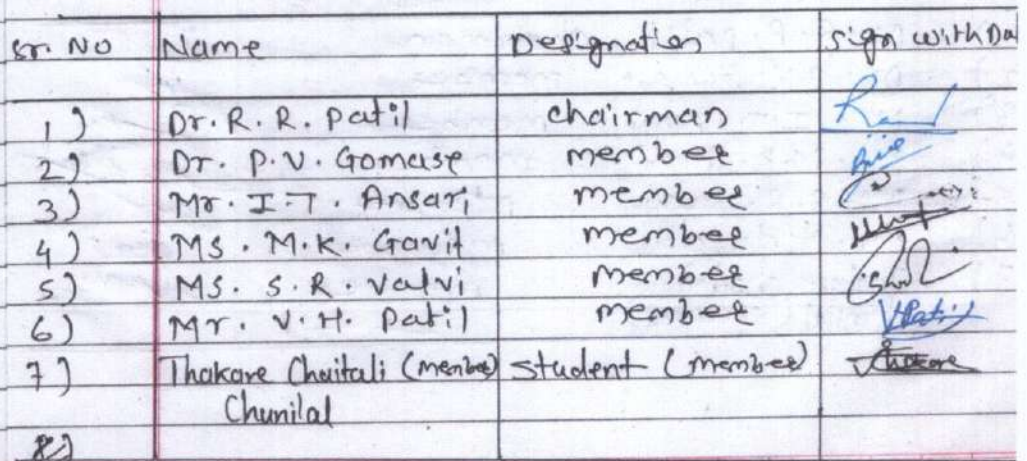 sr. No Name Designation sign with Da
1) Dr. R. R. Patil chairman
2) Dr. P.V. Gomase member
3) Mr. I.T. Ansari member
4) Ms. M.K. Gavit member
5) Ms. S.R. Valvi member
6) Mr. V.H. Patil member VHPatil
7) Thakare Chaitali (member) student (member) Thakare
Chunilal
8)